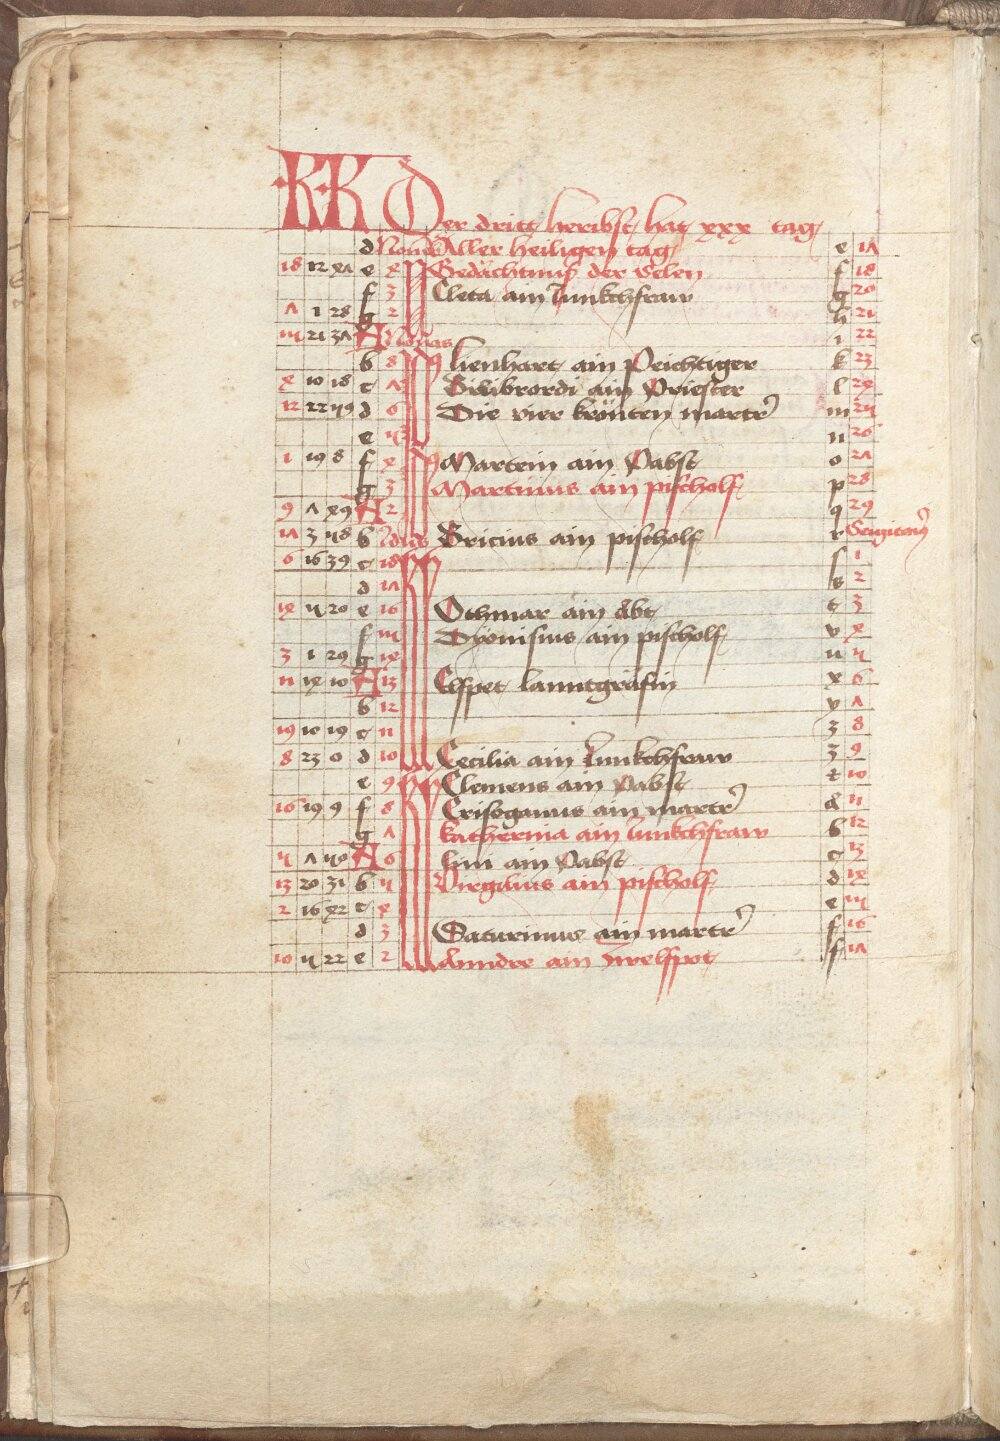 KK Der dritt heribst hat xxx tag
d Non Aller heiligen tag e 17
18 12 X7 e X Gedächtnuß der Selen f 18
f 3 Cleta ain Junkchfraw g 20
7 1 28 g 2 h 21
m 21 37 A Nonas i 22
b 8 lienhart ain Peichtiger k 23
X 10 18 c 7 Bilibrordi ain Priester l 2X
12 22 49 d 6 Die vier krönten martrer m 24
e n 26
1 19 8 f X Martein ain Pabst o 27
g 3 Martinus ain pischolf p 28
9 7 X9 A 2 q 29
17 3 48 b Idus Bricius ain pischolf r
6 16 39 c 18 s 1
d 17 s 2
1X 4 20 e 16 Othmar ain Abt t 3
f 14 Dyonisius ain pischolf v X
3 1 29 g 1X u 4
11 1X 10 A 13 Elspet lanntgräfin x 6
b 12 y 7
19 10 19 c 11 z 8
8 23 0 d 10 Cecilia ain Junkchfraw z 9
e 9 Clemens ain Pabst t 10
16 19 9 f 8 Crisogonus ain martrer a 11
g 7 Katherina ain Junkchfraw b 12
4 7 40 A 6 lini ain Pabst c 13
13 20 31 b 4 Virgilius ain pischolf d 1X
2 16 X2 c X e 14
d 3 Saturinus ain martrer f 16
10 4 22 e 2 Anndre ain Zwelfpot f 17